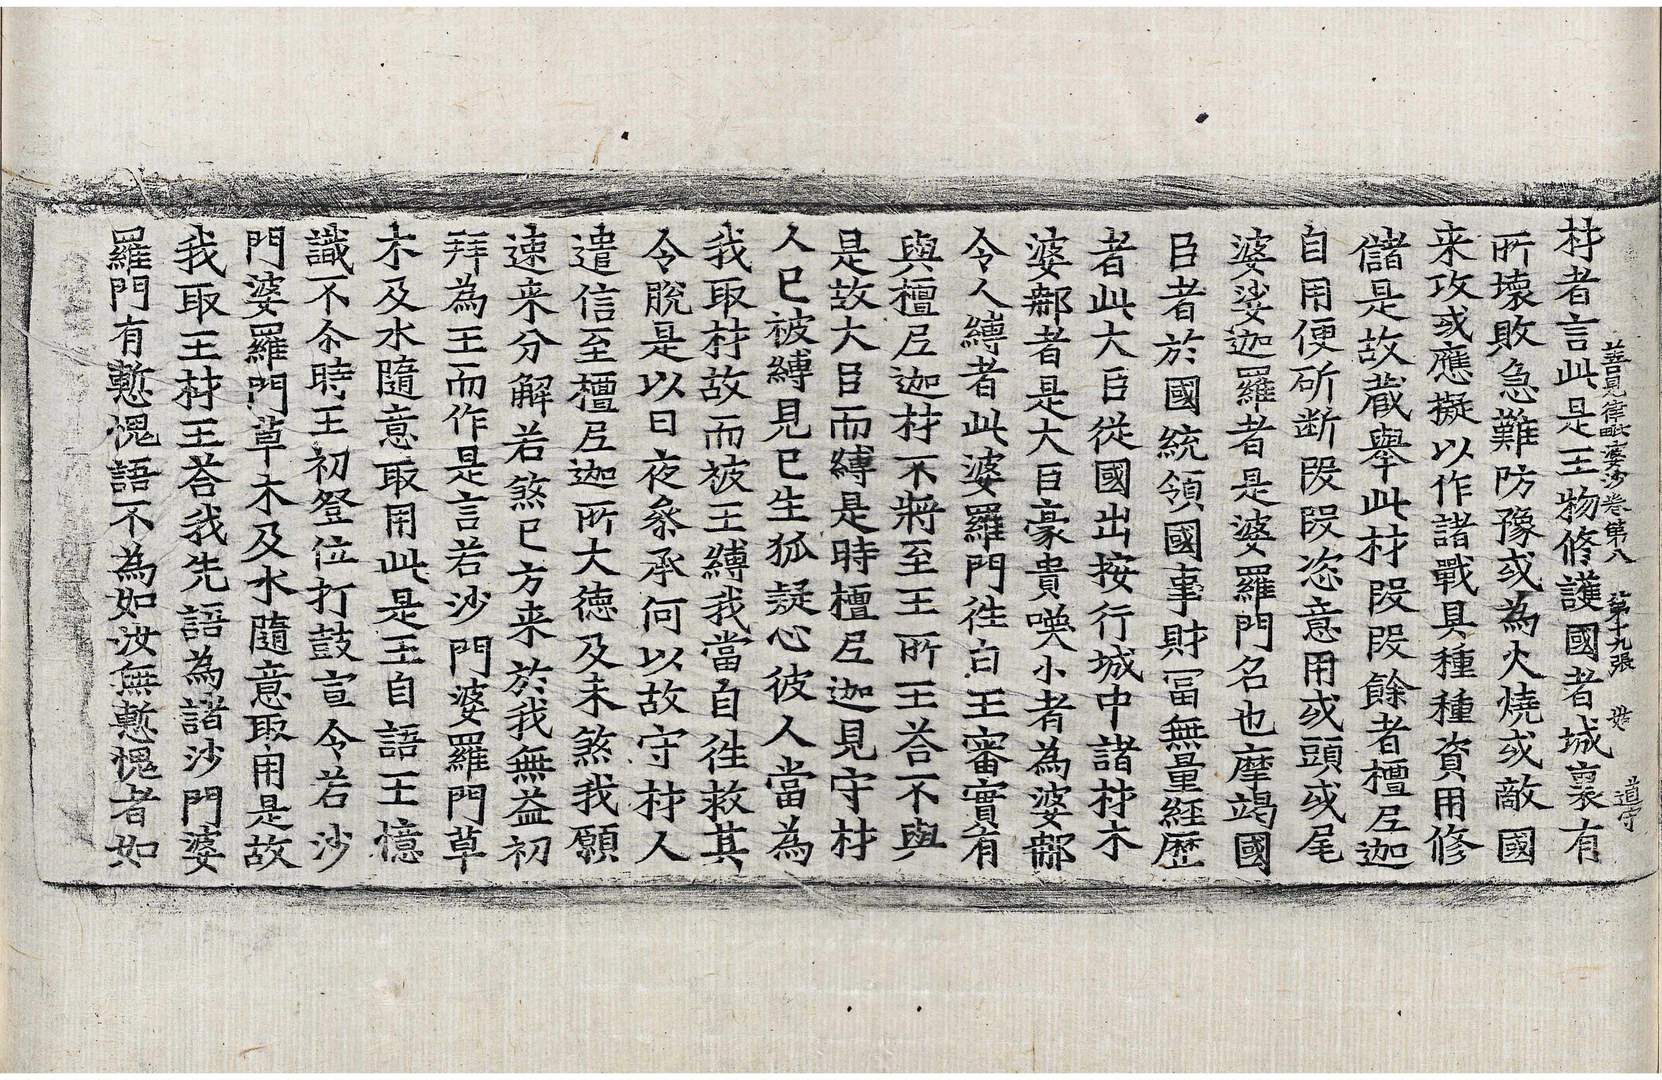 善見律毗婆沙卷第八 第十九張 𡛸 道守
材者言此是王物修護國者城裏有
所壞敗急難防豫或為火燒或敵國
来攻或應擬以作諸戰具種種資用修
儲是故蔵舉此材叚叚餘者檀尼迦
自用便斫断叚叚恣意用或頭或尾
婆娑迦羅者是婆羅門名也摩竭國
臣者於國統領國事財冨無量經歷
者此大臣從國出按行城中諸材木
婆鄁者是大臣豪貴嘆小者為婆鄁
令人縛者此婆羅門徃白王審實有
與檀尼迦材不將至王所王荅不與
是故大臣而縛是時檀尼迦見守材
人已被縛見已生狐疑心彼人當為
我取材故而被王縛我當自徃救其
令脫是以日夜叅承何以故守材人
遣信至檀尼迦所大德及未煞我願
速来分解若煞已方来於我無益初
拜為王而作是言若沙門婆羅門草
木及水隨意取用此是王自語王憶
識不尒時王初登位打鼓宣令若沙
門婆羅門草木及水隨意取用是故
我取王材王荅我先語為諸沙門婆
羅門有慙愧語不為如汝無慙愧者如